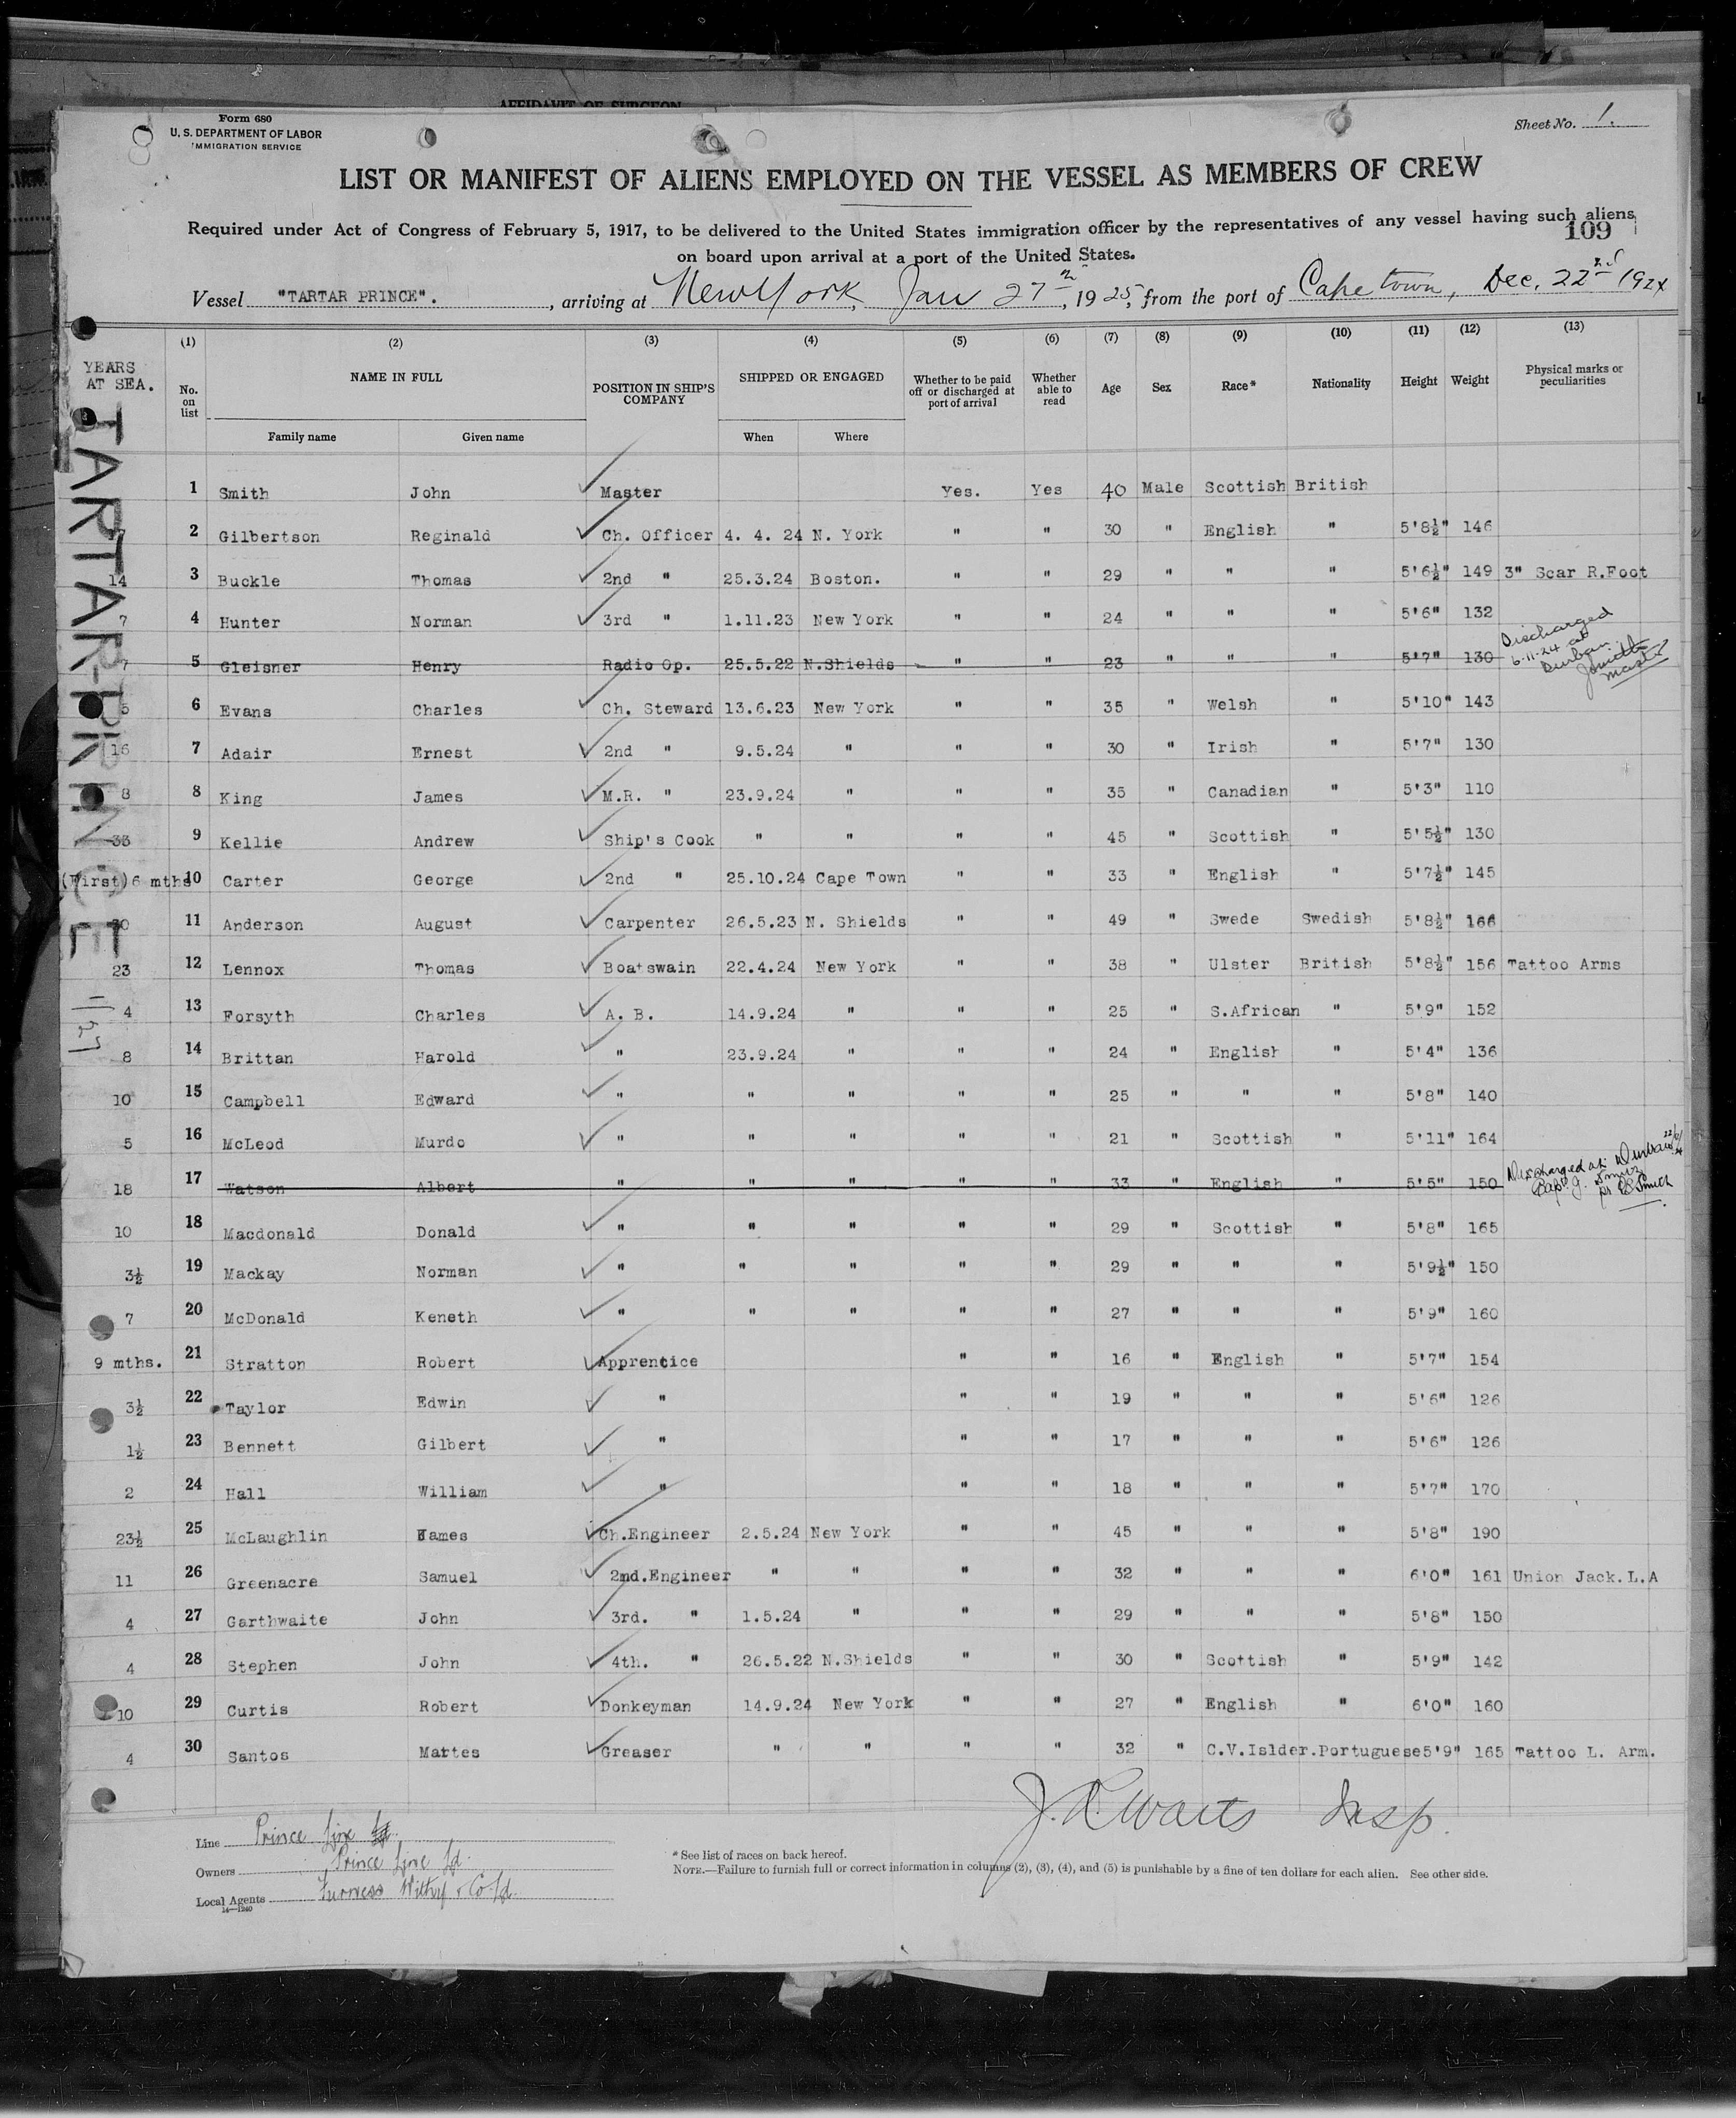 AFFIDAVIT OF SURGEON
Form 680
U. S. DEPARTMENT OF LABOR
IMMIGRATION SERVICE
Sheet No. 1.
LIST OR MANIFEST OF ALIENS EMPLOYED ON THE VESSEL AS MEMBERS OF CREW
Required under Act of Congress of February 5, 1917, to be delivered to the United States immigration officer by the representatives of any vessel having such aliens
109
on board upon arrival at a port of the United States.
Vessel "TARTAR PRINCE". , arriving at New York, Jan 27th, 1925, from the port of Capetown, Dec. 22nd 1924
(1) (2) (3) (4) (5) (6) (7) (8) (9) (10) (11) (12) (13)
YEARS AT SEA. No. on list NAME IN FULL POSITION IN SHIP'S COMPANY SHIPPED OR ENGAGED Whether to be paid off or discharged at port of arrival Whether able to read Age Sex Race* Nationality Height Weight Physical marks or peculiarities
Family name Given name When Where
TARTAR PRINCE
1 Smith John Master Yes. Yes 40 Male Scottish British
2 Gilbertson Reginald Ch. Officer 4. 4. 24 N. York " " 30 " English " 5'8½" 146
14 3 Buckle Thomas 2nd " 25.3.24 Boston. " " 29 " " " 5'6½" 149 3" Scar R.Foot
7 4 Hunter Norman 3rd " 1.11.23 New York " " 24 " " " 5'6" 132
7 5 Gleisner Henry Radio Op. 25.5.22 N.Shields " " 23 " " " 5'7" 130 Discharged 6-11-24 at Durban. JSmith Master
5 6 Evans Charles Ch. Steward 13.6.23 New York " " 35 " Welsh " 5'10" 143
16 7 Adair Ernest 2nd " 9.5.24 " " " 30 " Irish " 5'7" 130
8 8 King James M.R. " 23.9.24 " " " 35 " Canadian " 5'3" 110
33 9 Kellie Andrew Ship's Cook " " " " 45 " Scottish " 5'5½" 130
(First)6 mths 10 Carter George 2nd " 25.10.24 Cape Town " " 33 " English " 5'7½" 145
11 Anderson August Carpenter 26.5.23 N. Shields " " 49 " Swede Swedish 5'8½" 166
23 12 Lennox Thomas Boatswain 22.4.24 New York " " 38 " Ulster British 5'8½" 156 Tattoo Arms
4 13 Forsyth Charles A. B. 14.9.24 " " " 25 " S.African " 5'9" 152
8 14 Brittan Harold " 23.9.24 " " " 24 " English " 5'4" 136
10 15 Campbell Edward " " " " " 25 " " " 5'8" 140
5 16 McLeod Murdo " " " " " 21 " Scottish " 5'11" 164
18 17 Watson Albert " " " " " 33 " English " 5'5" 150 Discharged at Durban
10 18 Macdonald Donald " " " " " 29 " Scottish " 5'8" 165
3½ 19 Mackay Norman " " " " " 29 " " " 5'9½" 150
7 20 McDonald Keneth " " " " " 27 " " " 5'9" 160
9 mths. 21 Stratton Robert Apprentice " " 16 " English " 5'7" 154
3½ 22 Taylor Edwin " " " 19 " " " 5'6" 126
1½ 23 Bennett Gilbert " " " 17 " " " 5'6" 126
2 24 Hall William " " " 18 " " " 5'7" 170
23½ 25 McLaughlin James Ch.Engineer 2.5.24 New York " " 45 " " " 5'8" 190
11 26 Greenacre Samuel 2nd.Engineer " " " " 32 " " " 6'0" 161 Union Jack.L.A
4 27 Garthwaite John 3rd. " 1.5.24 " " " 29 " " " 5'8" 150
4 28 Stephen John 4th. " 26.5.22 N.Shields " " 30 " Scottish " 5'9" 142
10 29 Curtis Robert Donkeyman 14.9.24 New York " " 27 " English " 6'0" 160
4 30 Santos Mattes Greaser " " " " 32 " C.V.Islder. Portuguese 5'9" 165 Tattoo L. Arm.
Line Prince Line Ld.
Owners Prince Line Ld.
Local Agents Furness Withy & Co Ld.
14—1240
Insp.
* See list of races on back hereof.
NOTE.—Failure to furnish full or correct information in columns (2), (3), (4), and (5) is punishable by a fine of ten dollars for each alien. See other side.